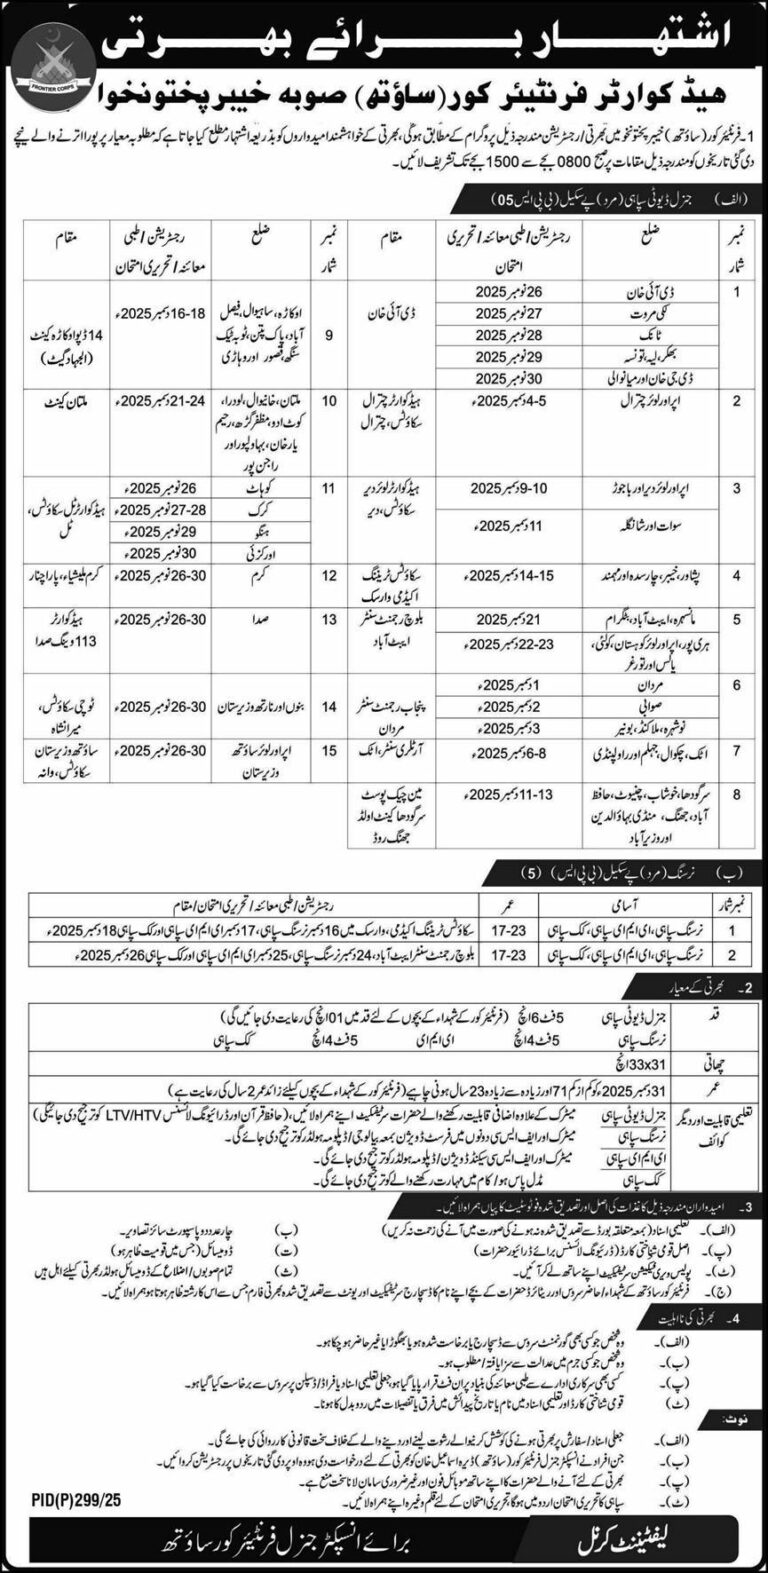 اشتہار برائے بھرتی
FRONTIER CORPS
ہیڈ کوارٹر فرنٹیئر کور (ساؤتھ) صوبہ خیبر پختونخوا
1- فرنٹیئر کور (ساؤتھ) خیبر پختونخوا میں بھرتی/رجسٹریشن مندرجہ ذیل پروگرام کے مطابق ہوگی، بھرتی کے خواہشمند امیدواروں کو بذریعہ اشتہار مطلع کیا جاتا ہے کہ مطلوبہ معیار پر پورا اترنے والے نیچے
دی گئی تاریخوں کو مندرجہ ذیل مقامات پر صبح 0800 بجے سے 1500 بجے تک تشریف لائیں۔
(الف) جنرل ڈیوٹی سپاہی (مرد) پے سکیل (بی پی ایس 05)
نمبر شمار ضلع رجسٹریشن/طبی معائنہ/تحریری امتحان مقام
1 ڈی آئی خان 26 نومبر 2025 ڈی آئی خان
لکی مروت 27 نومبر 2025
ٹانک 28 نومبر 2025
بھکر، لیہ، تونسہ 29 نومبر 2025
ڈی جی خان اور میانوالی 30 نومبر 2025
2 اپر اور لوئر چترال 4-5 دسمبر 2025ء ہیڈ کوارٹر چترال سکاؤٹس، چترال
3 اپر اور لوئر دیر اور باجوڑ 9-10 دسمبر 2025 ہیڈ کوارٹر لوئر دیر سکاؤٹس، دیر
سوات اور شانگلہ 11 دسمبر 2025ء
4 پشاور، خیبر، چارسدہ اور مہمند 14-15 دسمبر 2025ء سکاؤٹس ٹریننگ اکیڈمی وارسک
5 مانسہرہ، ایبٹ آباد، بٹگرام 21 دسمبر 2025 بلوچ رجمنٹ سنٹر ایبٹ آباد
ہری پور، اپر اور لوئر کوہستان، کولئی، پالس اور تورغر 22-23 دسمبر 2025ء
6 مردان 1 دسمبر 2025ء پنجاب رجمنٹ سنٹر مردان
صوابی 2 دسمبر 2025ء
نوشہرہ، ملاکنڈ، بونیر 3 دسمبر 2025ء
7 اٹک، چکوال، جہلم اور راولپنڈی 6-8 دسمبر 2025ء آرٹلری سنٹر، اٹک
8 سرگودھا، خوشاب، چنیوٹ، حافظ آباد، جھنگ، منڈی بہاؤالدین اور وزیر آباد 11-13 دسمبر 2025ء مین چیک پوسٹ سرگودھا کینٹ اولڈ جھنگ روڈ
نمبر شمار ضلع رجسٹریشن/طبی معائنہ/تحریری امتحان مقام
9 اوکاڑہ، ساہیوال، فیصل آباد، پاک پتن، ٹوبہ ٹیک سنگھ، قصور اور وہاڑی 16-18 دسمبر 2025ء 14 ڈپو اوکاڑہ کینٹ (الجہاد گیٹ)
10 ملتان، خانیوال، لودرا، کوٹ ادو، مظفر گڑھ، رحیم یار خان، بہاولپور اور راجن پور 21-24 دسمبر 2025ء ملتان کینٹ
11 کوہاٹ 26 نومبر 2025ء ہیڈ کوارٹر ٹل سکاؤٹس، ٹل
کرک 27-28 نومبر 2025ء
ہنگو 29 نومبر 2025ء
اورکزئی 30 نومبر 2025ء
12 کرم 26-30 نومبر 2025ء کرم ملیشیاء، پارا چنار
13 صدا 26-30 نومبر 2025ء ہیڈ کوارٹر 113 ونگ صدا
14 بنوں اور نارتھ وزیرستان 26-30 نومبر 2025ء ٹوچی سکاؤٹس، میرانشاہ
15 اپر اور لوئر ساؤتھ وزیرستان 26-30 نومبر 2025ء ساؤتھ وزیرستان سکاؤٹس، وانہ
(ب) نرسنگ (مرد) پے سکیل (بی پی ایس) (5)
نمبر شمار آسامی عمر رجسٹریشن/طبی معائنہ/تحریری امتحان/مقام
1 نرسنگ سپاہی، ای ایم ای سپاہی، کک سپاہی 17-23 سکاؤٹس ٹریننگ اکیڈمی، وارسک میں 16 دسمبر نرسنگ سپاہی، 17 دسمبر ای ایم ای سپاہی اور کک سپاہی 18 دسمبر 2025ء
2 نرسنگ سپاہی، ای ایم ای سپاہی، کک سپاہی 17-23 بلوچ رجمنٹ سنٹر ایبٹ آباد، 24 دسمبر نرسنگ سپاہی، 25 دسمبر ای ایم ای سپاہی اور کک سپاہی 26 دسمبر 2025ء
2- بھرتی کے معیار
قد جنرل ڈیوٹی سپاہی 5 فٹ 6 انچ (فرنٹیئر کور کے شہداء کے بچوں کے لئے قد میں 01 انچ کی رعایت دی جائیں گی)
نرسنگ سپاہی 5 فٹ 4 انچ ای ایم ای 5 فٹ 4 انچ کک سپاہی
چھاتی 33x31 انچ
عمر 31 دسمبر 2025ء کو کم از کم 17 اور زیادہ سے زیادہ 23 سال ہونی چاہیے (فرنٹیئر کور کے شہداء کے بچوں کیلئے زائد عمر 2 سال کی رعایت ہے)
تعلیمی قابلیت اور دیگر کوائف جنرل ڈیوٹی سپاہی میٹرک کے علاوہ اضافی قابلیت رکھنے والے حضرات سرٹیفکیٹ اپنے ہمراہ لائیں، (حافظ قرآن اور ڈرائیونگ لائسنس LTV/HTV کو ترجیح دی جائیگی)
نرسنگ سپاہی میٹرک اور ایف ایس سی دونوں میں فرسٹ ڈویژن بمعہ بیالوجی/ڈپلومہ ہولڈر کو ترجیح دی جائے گی۔
ای ایم ای سپاہی میٹرک اور ایف ایس سی سیکنڈ ڈویژن/ڈپلومہ ہولڈر کو ترجیح دی جائے گی۔
کک سپاہی مڈل پاس ہو/کام میں مہارت رکھنے والے کو ترجیح دی جائے گی۔
3- امیدواران مندرجہ ذیل کاغذات کی اصل اور تصدیق شدہ فوٹو سٹیٹ کاپیاں ہمراہ لائیں۔
(الف)۔ تعلیمی اسناد (بمعہ متعلقہ بورڈ سے تصدیق شدہ نہ ہونے کی صورت میں آنے کی زحمت نہ کریں) (ب) چار عدد دو پاسپورٹ سائز تصاویر۔
(پ)۔ اصل قومی شناختی کارڈ (ڈرئیونگ لائسنس برائے ڈرائیور حضرات) (ت) ڈومیسائل (جس میں قومیت ظاہر ہو)
(ٹ)۔ پولیس ویری فیکیشن سرٹیفکیٹ اپنے ساتھ لے کر آئیں۔ (ث) تمام صوبوں/اضلاع کے ڈومیسائل ہولڈر بھرتی کیلئے اہل ہیں
(ج)۔ فرنٹیئر کور ساؤتھ کے شہداء/حاضر سروس اور ریٹائرڈ حضرات کے بچے اپنے نام کا ڈسچارج سرٹیفکیٹ اور یونٹ سے تصدیق شدہ بھرتی فارم جس سے اس کا رشتہ ظاہر ہو تا ہو ہمراہ لائیں۔
4- بھرتی کی نااہلیت
(الف)۔ وہ شخص جو کسی بھی گورنمنٹ سروس سے ڈسچارج یا برخاست شدہ ہو یا بھگوڑا یا غیر حاضر ہو چکا ہو۔
(ب)۔ وہ شخص جو کسی جرم میں عدالت سے سزا یافتہ/مطلوب ہو۔
(پ)۔ کسی بھی سرکاری ادارے سے طبی معائنہ کی بنیاد پر ان فٹ قرار پایا گیا ہو، جعلی تعلیمی اسناد یا فراڈ/ڈسپلن پر سروس سے برخاست کیا گیا ہو۔
(ت)۔ قومی شناختی کارڈ اور تعلیمی اسناد میں نام یا تاریخ پیدائش میں فرق یا تفصیلات میں ردوبدل کا ہونا۔
نوٹ:
(الف)۔ جعلی اسناد/سفارش پر بھرتی ہونے کی کوشش کرنیوالے رشوت لینے اور دینے والے کے خلاف سخت قانونی کارروائی کی جائے گی۔
(ب)۔ جن افراد نے انسپکٹر جنرل فرنٹیئر کور (ساؤتھ) ڈیرہ اسماعیل خان کو بھرتی کے لئے درخواست دی ہو وہ اوپر دی گئی تاریخوں پر رجسٹریشن کروائیں۔
(پ)۔ بھرتی کے لئے آنے والے حضرات کا اپنے ساتھ موبائل فون اور غیر ضروری سامان لانا سخت منع ہے۔
(ت)۔ سپاہی کا تحریری امتحان اردو میں ہوگا تحریری امتحان کے لئے قلم وغیرہ اپنے ہمراہ لائیں۔
PID(P)299/25
لیفٹیننٹ کرنل
برائے انسپکٹر جنرل فرنٹیئر کور ساؤتھ